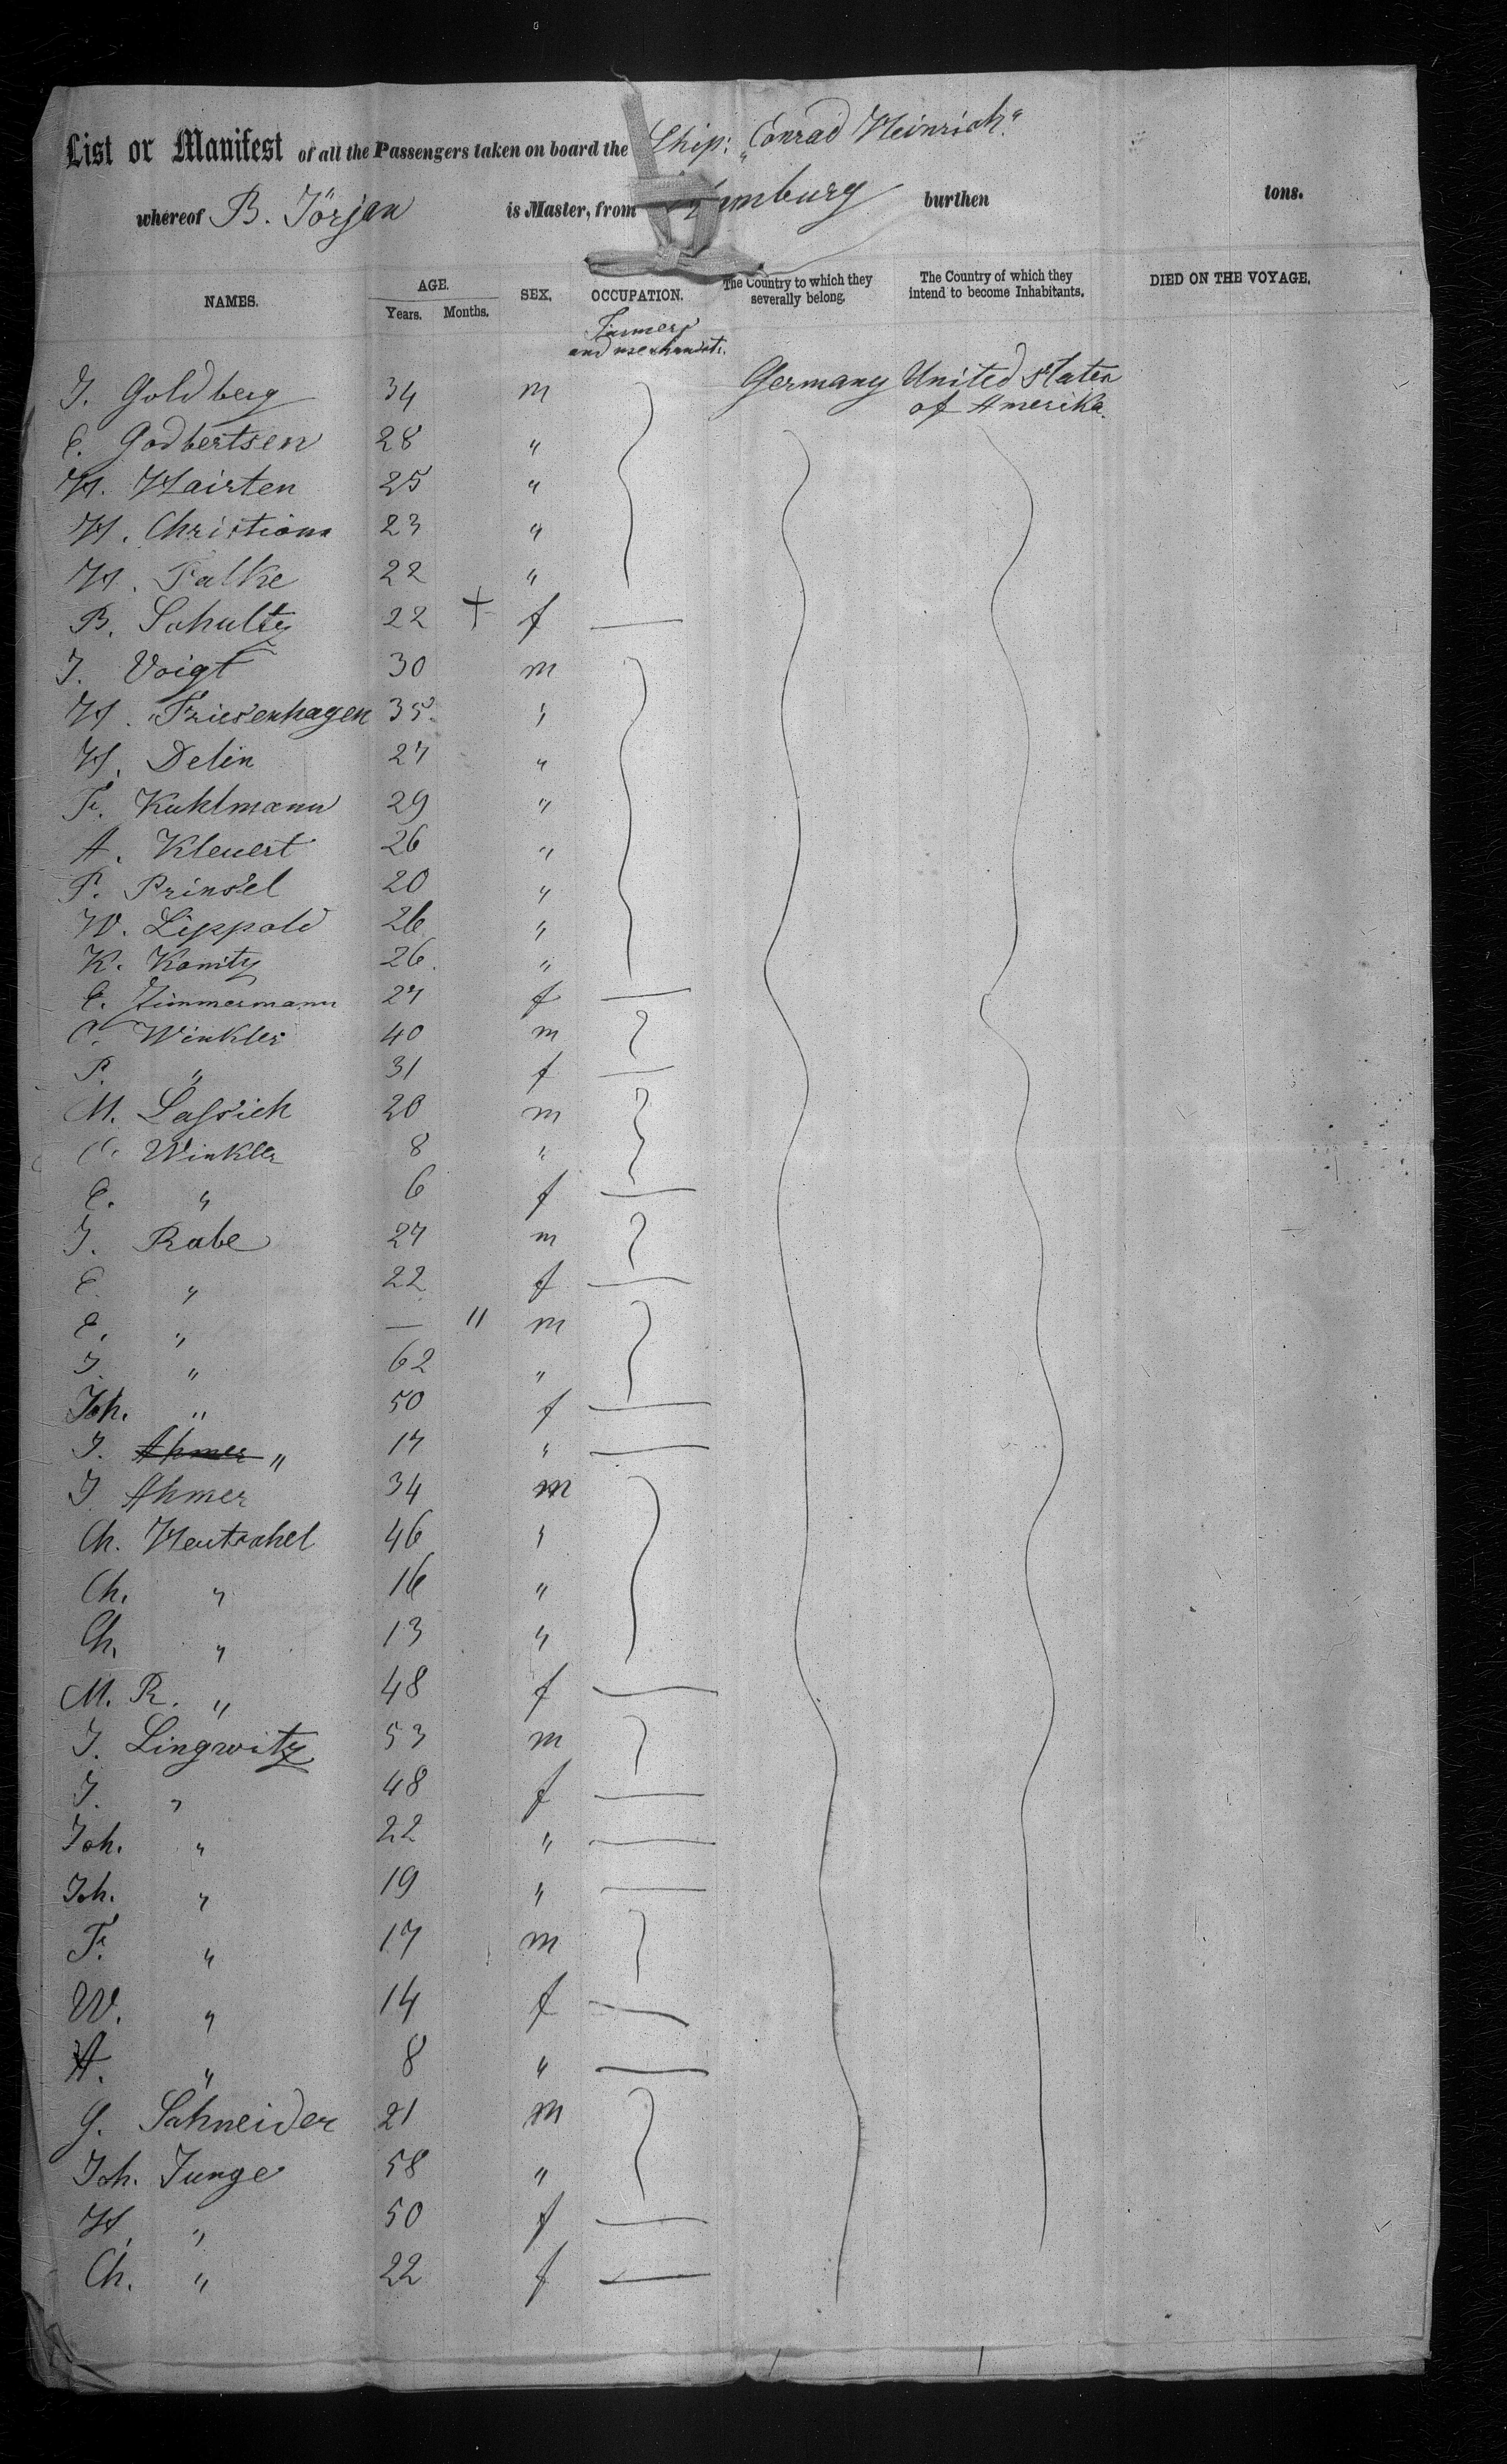 List or Manifest of all the Passengers taken on board the Ship: „Conrad Heinrich"
whereof B. Jörjan is Master, from burthen tons.
NAMES. AGE. SEX. OCCUPATION. The Country to which they severally belong. The Country of which they intend to become Inhabitants. DIED ON THE VOYAGE.
Years. Months.
Farmers
and merchants.
J. Goldberg 34 m Germany United States
of Amerika.
C. Godbertsen 28 "
H. Hairten 25 "
H. Christions 23 "
H. Falke 22 "
B. Schultz 22 + f —
J. Voigt 30 m
H. Friesenhagen 35 "
H. Delin 27 "
Fr. Kuhlmann 29 "
A. Kleuert 26 "
P. Prinsel 20 "
W. Lippold 26 "
K. Konitz 26. "
E. Zimmermann 27 f —
C. Winkler 40 m
P. " 31 f —
M. Lassich 20 m
C. Winkler 8 "
E. " 6 f —
J. Rabe 27 m
E. " 22 f —
E. " — 11 m
J. " 62 "
Joh. " 50 f —
J. Ahmer " 17 " —
J. Ahmer 34 m
Ch. Hentschel 46 "
Ch. " 16 "
Ch. " 13 "
M. R. " 48 f —
J. Lingwitz 53 m
J. " 48 f —
Joh. " 22 " —
Joh. " 19 " —
Fr. " 17 m
W. " 14 f —
A. " 8 " —
G. Schneider 21 m
Joh. Junge 58 "
H. " 50 f —
Ch. " 22 f —